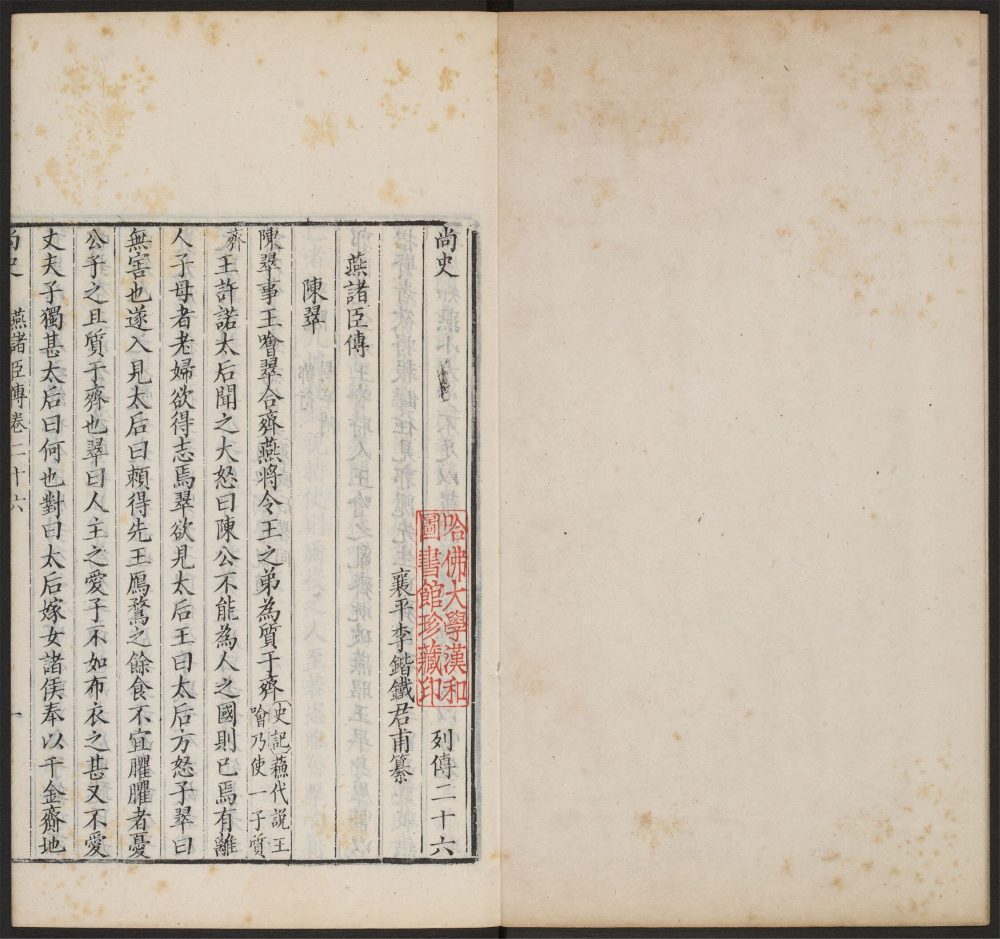 尚史 列傳二十六
哈佛大學漢和
圖書館珍藏印
襄平李鍇鐵君甫纂
燕諸臣傳
陳翠
陳翠事王噲翠合齊燕將令王之弟為質于齊史記蘇代說王
噲乃使一子質
齊王許諾太后聞之大怒曰陳公不能為人之國則已焉有離
人子母者老婦欲得志焉翠欲見太后王曰太后方怒子翠曰
無害也遂入見太后曰賴得先王鴈鶩之餘食不宜臞臞者憂
公子之且質于齊也翠曰人主之愛子不如布衣之甚又不愛
丈夫子獨甚太后曰何也對曰太后嫁女諸侯奉以千金齎地
尚史 燕諸臣傳卷二十六 一